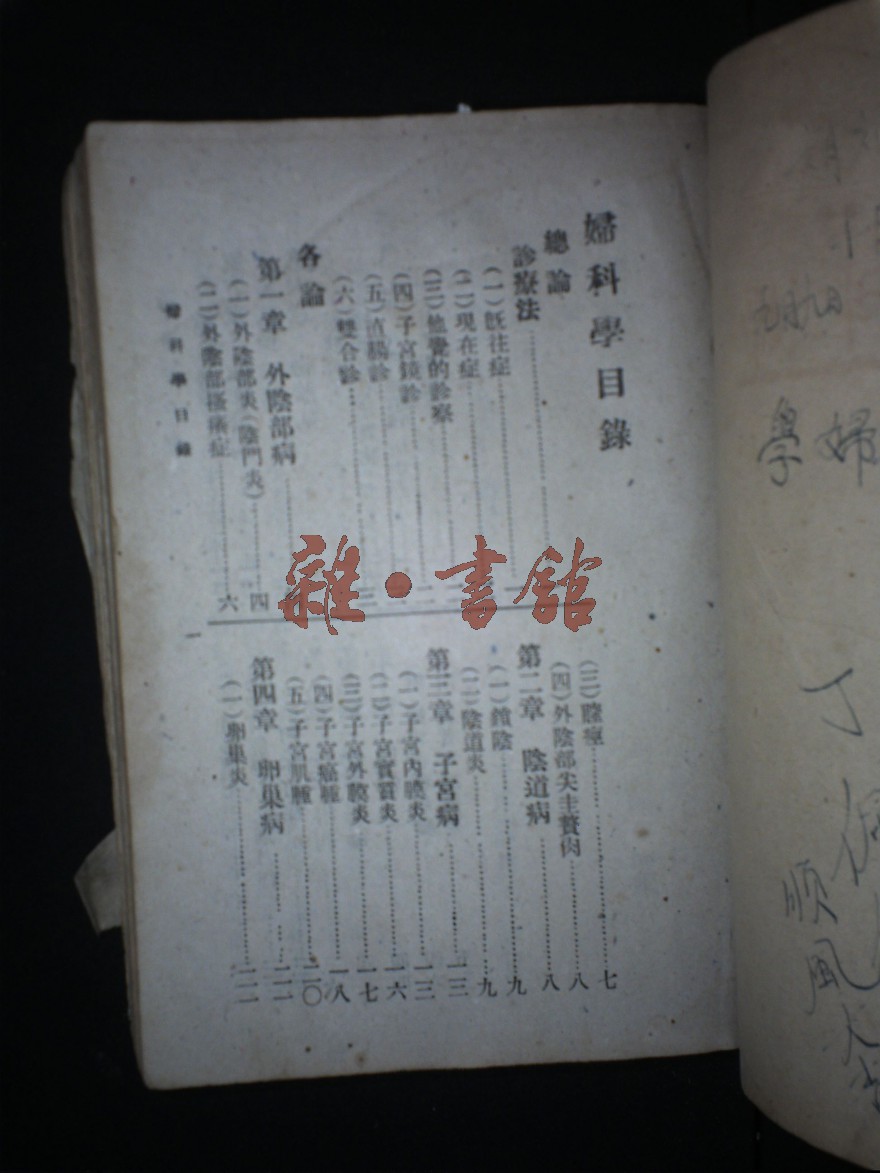 婦科學目錄
總論
診療法
(一)既往症
(二)現在症
(三)他覺的診察
(四)子宮鏡診
(五)直腸診
(六)雙合診
各論
第一章 外陰部病
(一)外陰部炎(陰門炎) 四
(二)外陰部瘙痒症 六
婦科學目錄
一
(三)膣痙 七
(四)外陰部尖圭贅肉 八
第二章 陰道病 八
(一)鎖陰 九
(二)陰道炎 九
第三章 子宮病 一三
(一)子宮內膜炎 一三
(二)子宮實質炎 一六
(三)子宮外膜炎 一七
(四)子宮癌腫 一八
(五)子宮肌腫 二〇
第四章 卵巢病
(一)卵巢炎
雜·書館
婦
學
丁
順風